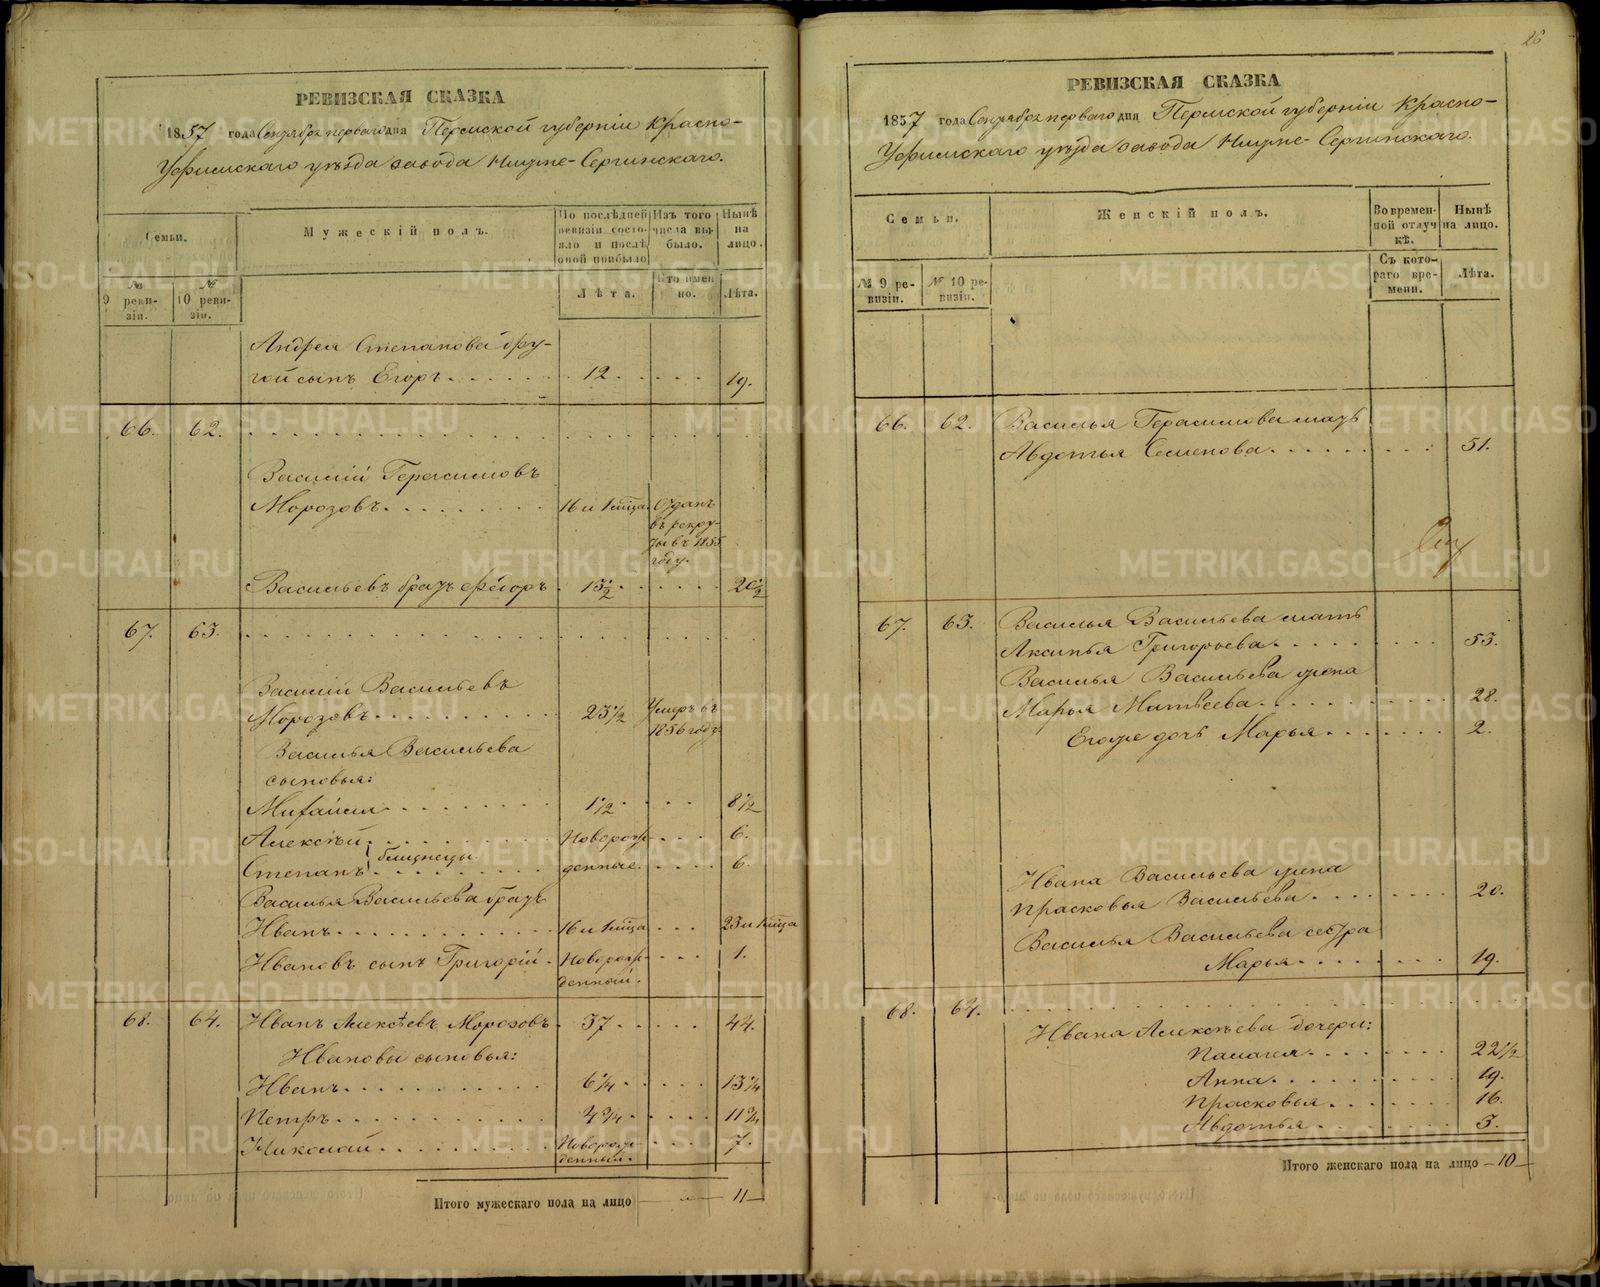 РЕВИЗСКАЯ СКАЗКА
1857 года Сентября перваго дня Пермской губерніи Красно-
Уфимскаго уѣзда завода Нижне-Сергинскаго.
Семьи.
Мужескій полъ.
По послѣдней ревизіи состояло и послѣ оной прибыло
Изъ того числа выбыло.
Нынѣ на лицо.
№ 9 ревизіи.
№ 10 ревизіи.
Лѣта.
Кто именно.
Лѣта.
Андрея Степанова дру-
гой сынъ Егоръ 12 19.
66. 62.
Василій Герасимовъ
Морозовъ 16 и 1 мѣсца Отданъ
въ рекру-
ты въ 1855
году.
Васильевъ братъ Ѳедоръ 13 1/2 20 1/2
67. 63.
Василій Васильевъ
Морозовъ 23 1/2 Умеръ въ
1856 году
Василья Васильева
сыновья:
Михаилъ 1 1/2 8 1/2
Алексѣй Новорож- 6.
близнецы
Степанъ денные. 6.
Василья Васильева братъ
Иванъ 16 и 1 мѣсца 23 и 1 мѣсца
Ивановъ сынъ Григорій Новорож- 1.
денный.
68. 64. Иванъ Алексѣевъ Морозовъ 37 44.
Ивановы сыновья:
Иванъ 6 1/4 13 1/4
Петръ 4 3/4 11 3/4
Николай Новорож- 7.
денный.
Итого мужескаго пола на лицо 11
26
РЕВИЗСКАЯ СКАЗКА
1857 года Сентября перваго дня Пермской губерніи Красно-
Уфимскаго уѣзда завода Нижне-Сергинскаго.
Семьи.
Женскій полъ.
Во временной отлучкѣ.
Нынѣ на лицо.
№ 9 ревизіи.
№ 10 ревизіи.
Съ котораго времени.
Лѣта.
66. 62. Василья Герасимова мать
Авдотья Семенова 51.
67. 63. Василья Васильева мать
Аксинья Григорьева 53.
Василья Васильева жена
Марья Матвѣева 28.
Егоже дочь Марья 2.
Ивана Васильева жена
Прасковья Васильева 20.
Василья Васильева сестра
Марья 19.
68. 64.
Ивана Алексѣева дочери:
Палагея 22 1/2
Анна 19.
Прасковья 16.
Авдотья 3.
Итого женскаго пола на лицо 10
METRIKI.GASO-URAL.RU